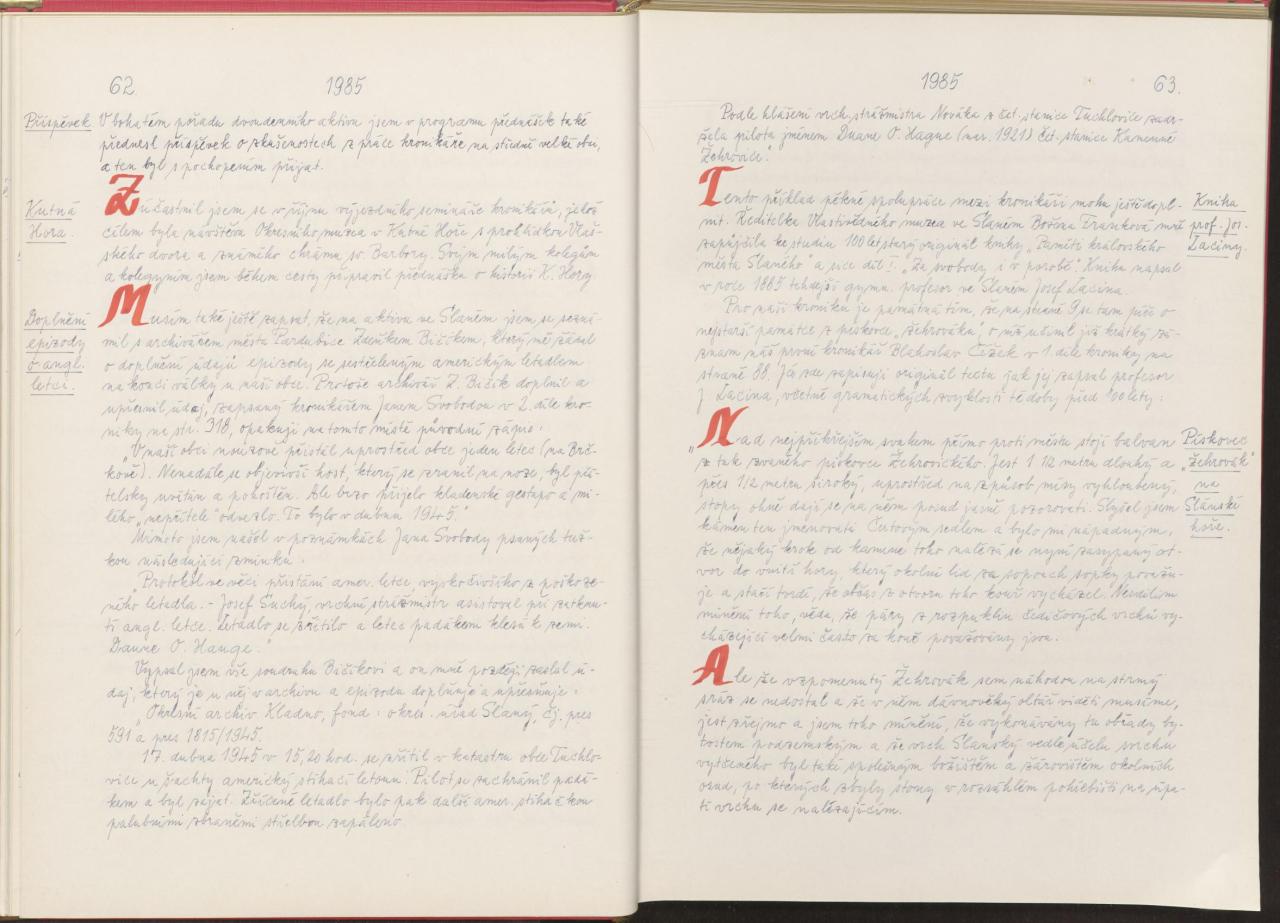 62
1985
Příspěvek
V bohatém pořadu dvoudenního aktivu jsem v programu přednášek také
přednesl příspěvek o zkušenostech z práce kronikáře na středně velké obci,
a ten byl s pochopením přijat.
Kutná
Hora.
Zúčastnil jsem se v říjnu výjezdního semináře kronikářů, jehož
cílem byla návštěva Okresního muzea v Kutné Hoře s prohlídkou Vlaš-
ského dvora a známého chrámu sv. Barbory. Svým milým kolegům
a kolegyním jsem během cesty připravil přednášku o historii K. Hory
Doplnění
epizody
o angl.
letci.
Musím také ještě zapsat, že na aktivu ve Slaném jsem se sezná-
mil s archivářem města Pardubice Zdeňkem Bičíkem, který mě žádal
o doplnění údajů epizody se sestřeleným americkým letadlem
na konci války u naší obce. Protože archivář Z. Bičík doplnil a
upřesnil údaj, zapsaný kronikářem Janem Svobodou v 2. díle kro-
niky na str. 318, opakuji na tomto místě původní zápis:
„V naší obci nouzově přistál uprostřed obce jeden letec (na Brč-
kově). Nenadále se objevivší host, který se zranil na noze, byl přá-
telsky uvítán a pohoštěn. Ale brzo přijelo kladenské gestapo a mi-
lého „nepřítele“ odvezlo. To bylo v dubnu 1945.“
Mimoto jsem našel v poznámkách Jana Svobody psaných tuž-
kou následující zmínku:
„Protokol ve věci přistání amer. letce, vyskočivšího z poškoze-
ného letadla. - Josef Suchý, vrchní strážmistr asistoval při zatknu-
tí angl. letce. Letadlo se zřítilo a letec padákem klesá k zemi.
Daune O. Hauge.“
Vypsal jsem vše soudruhu Bičíkovi a on mně později zaslal ú-
daj, který je u něj v archivu a epizodu doplňuje a upřesňuje:
„Okresní archiv Kladno, fond: okres. úřad Slaný, čj. pres
591 a pres 1815/1945.
17. dubna 1945 v 15,20 hod. se zřítil v katastru obce Tuchlo-
vice u šachty americký stíhací letoun. Pilot se zachránil padá-
kem a byl zajat. Zřícené letadlo bylo pak další amer. stíhačkou
palubními zbraněmi střelbou zapáleno.
1985
63.
Podle hlášení vrch. strážmistra Nováka z čet. stanice Tuchlovice zadr-
žela pilota jménem Duane O. Hague (nar. 1921) čet. stanice Kamenné
Žehrovice.“
Kniha
prof. Jos.
Laciny.
Tento příklad pěkné spolupráce mezi kronikáři mohu ještě dopl-
nit. Ředitelka Vlastivědného muzea ve Slaném Božena Franková mně
zapůjčila ke studiu 100 let starý originál knihy „Paměti královského
města Slaného“ a sice díl I. „Za svobody i v porobě“. Knihu napsal
v roce 1885 tehdejší gymn. profesor ve Slaném Josef Lacina.
Pro naši kroniku je památná tím, že na straně 9 se tam píše o
nejstarší památce z pískovce „žehrováku“ o níž učinil již krátký zá-
znam náš první kronikář Blahoslav Čížek v 1. díle kroniky na
straně 88. Já zde zapisuji originál textu jak jej zapsal profesor
J. Lacina, včetně gramatických zvyklostí té doby před 100 lety:
Pískovec
„žehrovák“
na
Slánské
hoře.
„Nad nejpříkřejším svahem přímo proti městu stojí balvan
z tak zvaného pískovce Žehrovického. Jest 1 1/2 metru dlouhý a
přes 1/2 metru široký, uprostřed na způsob mísy vyhloubený,
stopy ohně dají se na něm posud jasně pozorovati. Slyšel jsem
kámen ten jmenovati Čertovým sedlem a bylo mi nápadným,
že nějaký krok od kamene toho nalézá se nyní zasypaný ot-
vor do vnitř hory, který okolní lid za sopouch sopky považu-
je a staří tvrdí, že občas z otvoru toho kouř vycházel. Nesdílím
mínění toho, věda, že páry z rozpuklin čedičových vrchů vy-
cházející velmi často za kouř považovány jsou.
Ale že vzpomenutý Žehrovák sem náhodou na strmý
sráz se nedostal a že v něm dávnověký oltář viděti musíme,
jest zřejmo a jsem toho mínění, že vykonávány tu obřady by-
tostem podzemským a že vrch Slanský vedle účelu svrchu
vytčeného byl také společným božištěm a žárovištěm okolních
osad, po kterých zbyly stopy v rozsáhlém pohřebišti na úpa-
tí vrchu se nalézajícím.